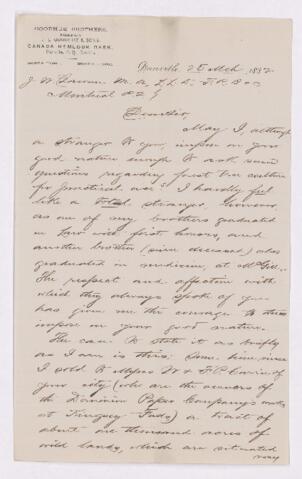 GOODHUE BROTHERS,
CANADA HEMLOCK BARK,
Danville, 2 March 1882
J. W. Dawson M. A., L L. D., F. R. S. &c
Montreal P. Q
Dear Sir,
May I, although
a stranger to you, impose on your
good nature enough to ask some
questions regarding forest tree culture
for practical use? I hardly feel
like a total stranger, however
as one of my brothers graduated
in Law with first honors, and
another brother (since deceased) also
graduated in medicine, at McGill.
The respect and affection with
which they always spoke of you
has given me the courage to thus
impose on your good nature.
The case to state it as briefly
as I can is this: Some time since
I sold to Messrs W & F P Currie of
your city (who are the owners of
the Dominion Paper Company's works
at Kingsey Falls) a tract of
about one thousand acres of
wild lands, which are situated
very